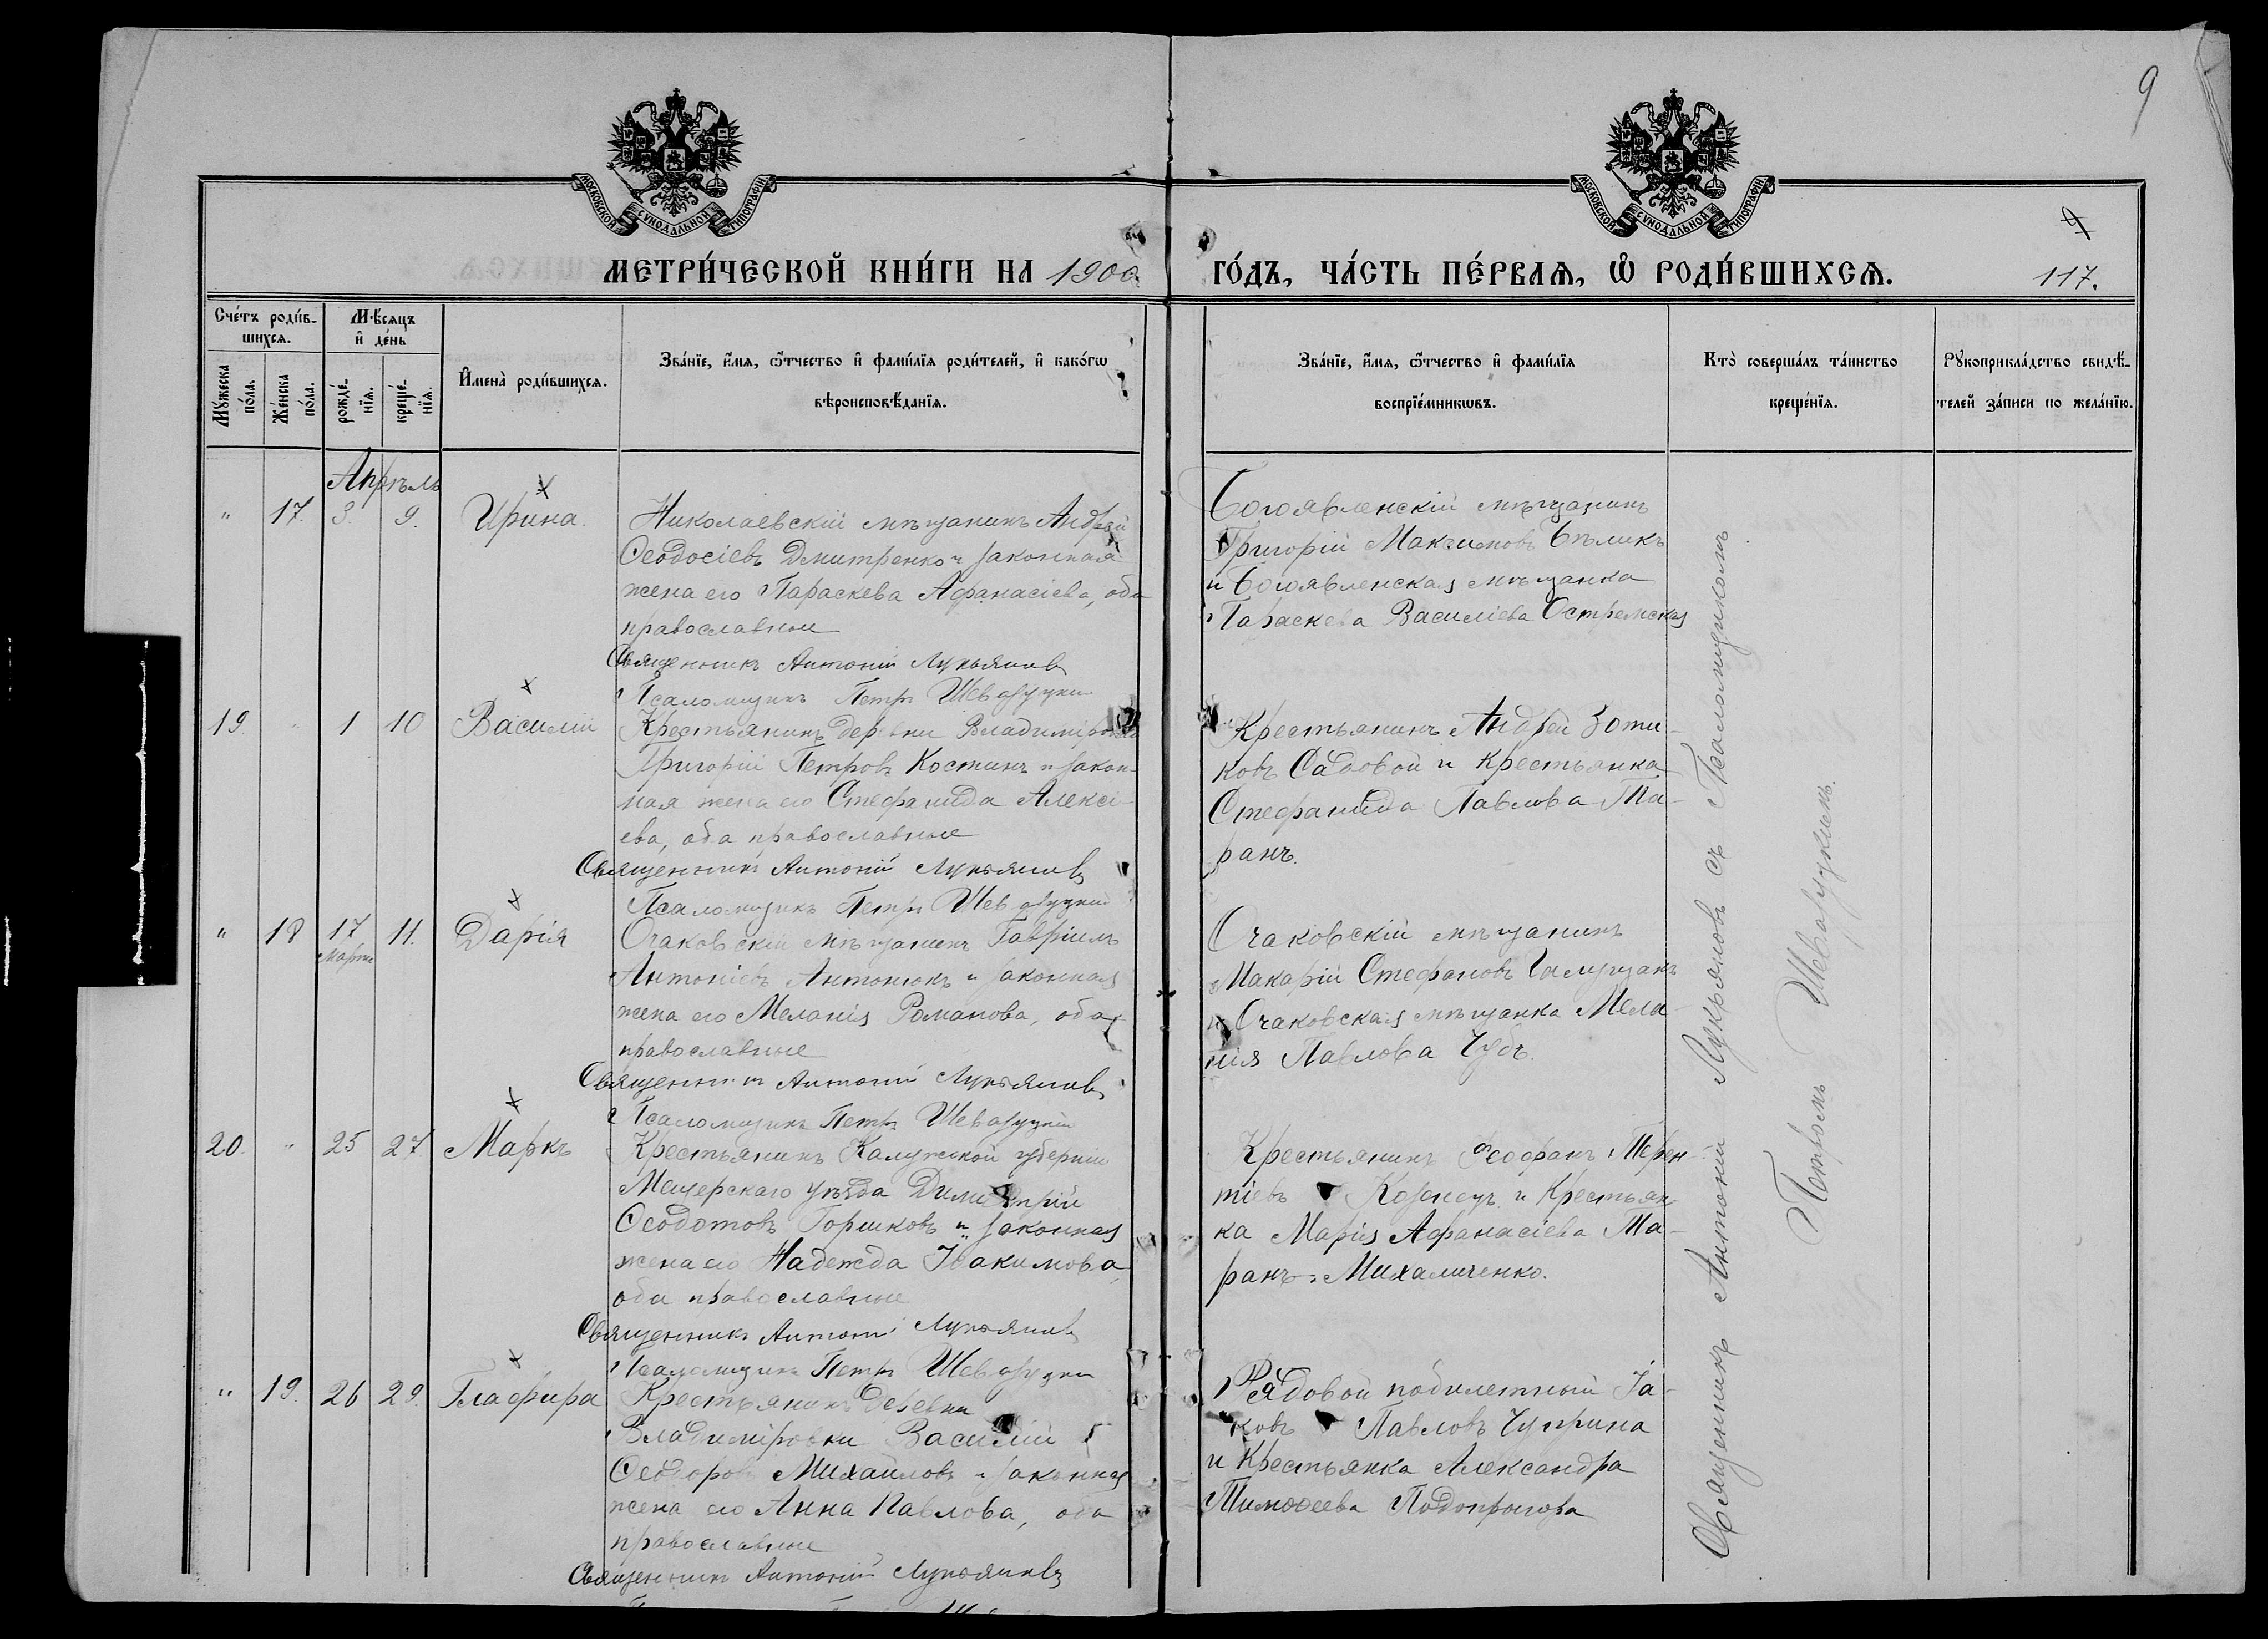 9
МОСКОВСКОЙ СѴНОДАЛЬНОЙ ТИПОГРАФІИ
МОСКОВСКОЙ СѴНОДАЛЬНОЙ ТИПОГРАФІИ
МЕТРИ́ЧЕСКОЙ КНИ́ГИ НА 1900
ГО́ДЪ, ЧА́СТЬ ПЕ́РВАЯ, Ѡ҆ РОДИ́ВШИХСЯ.
9
117.
Сче́тъ роди́в-
шихся.
Мꙋжеска по́ла.
Же́нска по́ла.
Мѣ́сяцъ
и҆ де́нь
рожде́-
нїя.
креще́-
нїя.
И҆мена̀ роди́вшихся.
Зва́нїе, и҆́мя, ѻ҆́тчество и҆ фами́лїя роди́телей, и҆ како́гѡ
вѣроисповѣ́данїя.
Зва́нїе, и҆́мя, ѻ҆́тчество и҆ фами́лїя
воспрїе́мникѡвъ.
Кто̀ соверша́лъ та́инство
креще́нїя.
Рꙋкоприкла́дство свидѣ́-
телей за́писи по жела́нїю.
Апрѣль
" 17. 3. 9. Ирина.
Николаевскій мѣщанинъ Андрей
Ѳеодосіевъ Дмитренко и законная
жена его Параскева Афанасіева, оба
православные
Священникъ Антоній Лукьяновъ
Псаломщикъ Петръ
Богоявленскій мѣщанинъ
Григорій Максимовъ Бѣликъ
и Богоявленская мѣщанка
Параскева Василіева Остремская
19. " 1 10 Василій
Крестьянинъ деревни Владимировки
Григорій Петровъ Костинъ и закон-
ная жена его Стефанида Алексі-
ева, оба православные
Священникъ Антоній Лукьяновъ
Псаломщикъ Петръ
Крестьянинъ Андрей Зоти-
ковъ Садовой и крестьянка
Стефанида Павлова Та-
ранъ.
" 18 17 Марта 11. Дарія
Очаковскій мѣщанинъ Гавріилъ
Антоніевъ Антонюкъ и законная
жена его Меланія Романова, оба
православные
Священникъ Антоній Лукьяновъ
Псаломщикъ Петръ
Очаковскій мѣщанинъ
Макарій Стефановъ
и Очаковская мѣщанка Мела-
нія Павлова Чубъ.
20. " 25 27 Маркъ
Крестьянинъ Калужской губерніи
Мещерскаго уѣзда Димитрій
Ѳеодотовъ Горшковъ и законная
жена его Надежда Іоакимова
оба православные
Священникъ Антоній Лукьяновъ
Псаломщикъ Петръ
Крестьянинъ Ѳеофанъ Терен-
тіевъ и Крестьян-
ка Марія Афанасіева Та-
ранъ-Михаличенко.
" 19. 26 29. Глафира
Крестьянинъ деревни
Владиміровки Василій
Ѳеодоровъ Михайловъ и законная
жена его Анна Павлова, оба
православные
Священникъ Антоній Лукьяновъ
Рядовой побилетный Іа-
ковъ Павловъ Чуприна
и Крестьянка Александра
Тимоѳеева Подопригора
Священникъ Антоній Лукьяновъ съ Псаломщикомъ
Петромъ